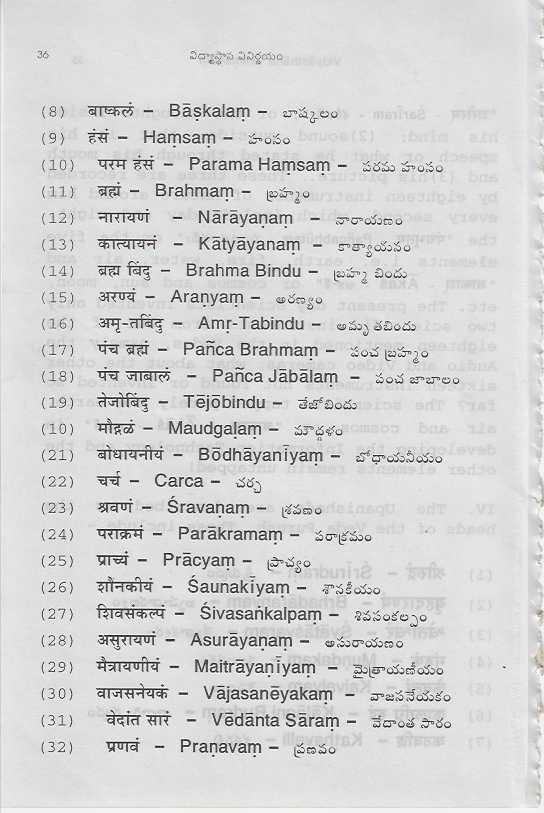 36 విద్యాస్థాన వినిర్ణయం
(8) बाष्कलं – Bāṣkalaṃ – బాష్కలం
(9) हंसं – Haṃsaṃ – హంసం
(10) परम हंसं – Parama Haṃsaṃ – పరమ హంసం
(11) ब्रह्मं – Brahmaṃ – బ్రహ్మం
(12) नारायणं – Nārāyaṇaṃ – నారాయణం
(13) कात्यायनं – Kātyāyanaṃ – కాత్యాయనం
(14) ब्रह्म बिंदु – Brahma Bindu – బ్రహ్మ బిందు
(15) अरण्यं – Araṇyaṃ – అరణ్యం
(16) अमृ-तबिंदु – Amṛ-Tabindu – అమృ తబిందు
(17) पंच ब्रह्मं – Pañca Brahmaṃ – పంచ బ్రహ్మం
(18) पंच जाबालं – Pañca Jābālaṃ – పంచ జాబాలం
(19) तेजोबिंदु – Tējōbindu – తేజోబిందు
(10) मौद्गळं – Maudgaḷaṃ – మౌద్గళం
(21) बोधायनीयं – Bōdhāyanīyaṃ – బోధాయనీయం
(22) चर्च – Carca – చర్చ
(23) श्रवणं – Śravaṇaṃ – శ్రవణం
(24) पराक्रमं – Parākramaṃ – పరాక్రమం
(25) प्राच्यं – Prācyaṃ – ప్రాచ్యం
(26) शौनकीयं – Śaunakīyaṃ – శౌనకీయం
(27) शिवसंकल्पं – Śivasaṅkalpaṃ – శివసంకల్పం
(28) असुरायणं – Asurāyaṇaṃ – అసురాయణం
(29) मैत्रायणीयं – Maitrāyaṇīyaṃ – మైత్రాయణీయం
(30) वाजसनेयकं – Vājasanēyakaṃ – వాజసనేయకం
(31) वेदांत सारं – Vēdānta Sāraṃ – వేదాంత సారం
(32) प्रणवं – Praṇavaṃ – ప్రణవం